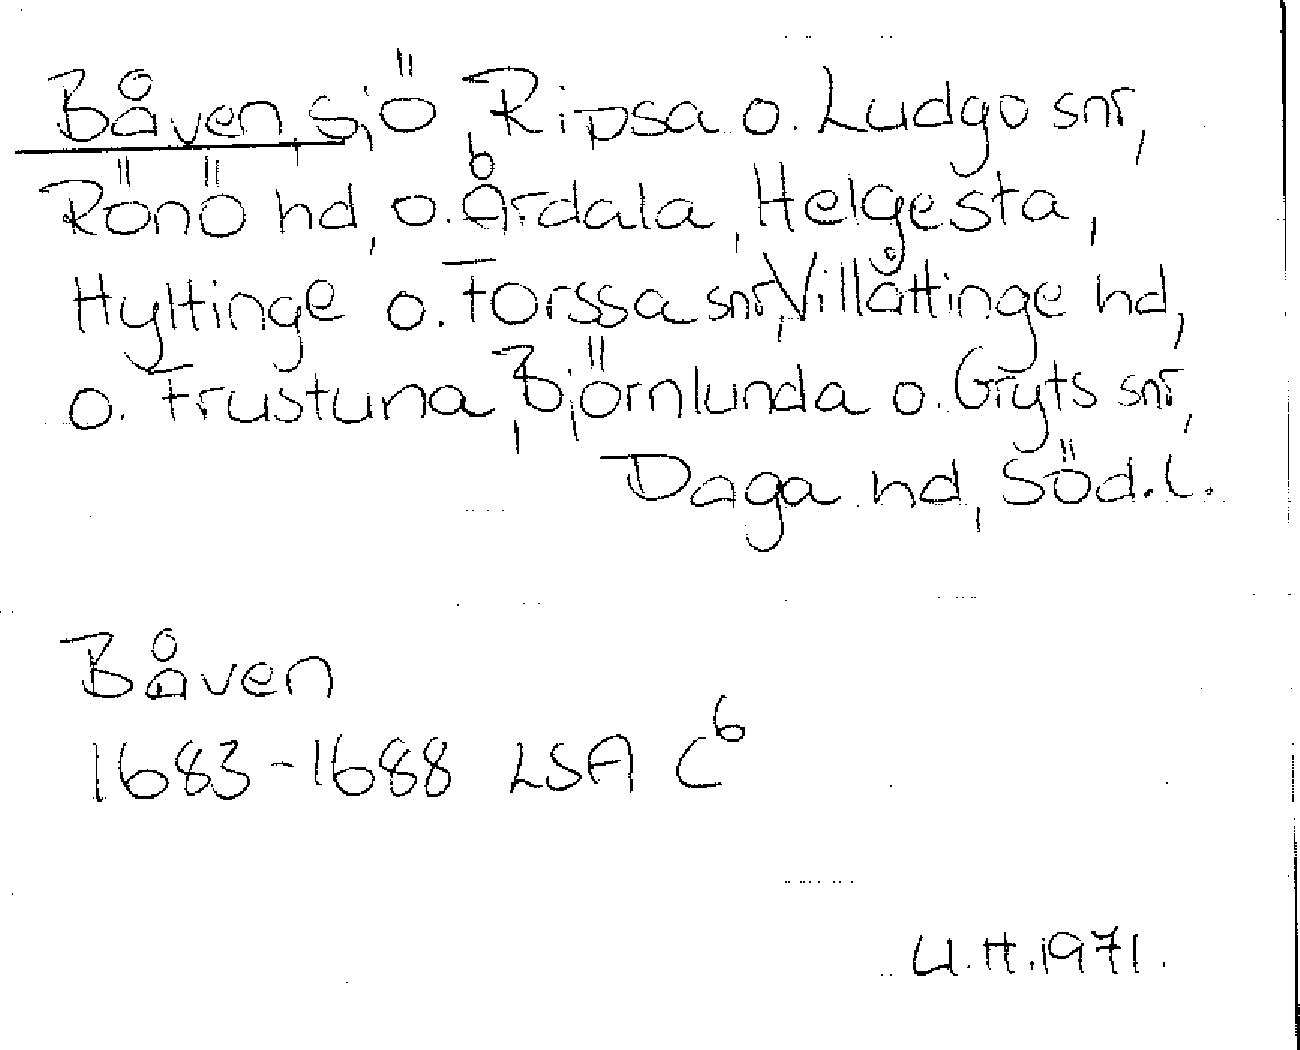 Båven, sjö, Ripsa o. Ludgo snr,
Rönö hd, o. Årdala, Helgesta,
Hyltinge o. Forssa snr, Villåttinge hd,
o. Frustuna, Björnlunda o. Gryts snr,
Daga hd, Söd.l.
Båven
1683-1688 LSA C⁶
U.H.1971.